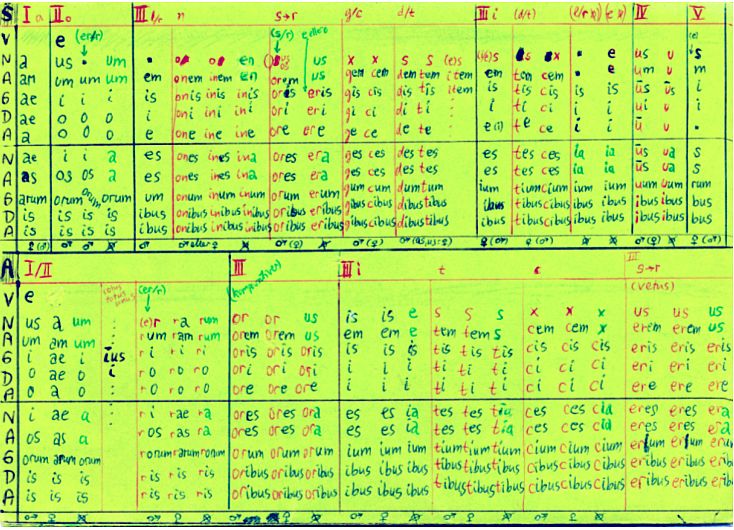 S I a II o III l/r n s→r g/c d/t III i (d/t) IV V
V e (er/r) (s/r)
N a us um en us x x s s (e)s e us u s
A am um um um em onem inem en orem us gem cem dem tem item em tem cem e um u m
G ae i i i is onis inis inis oris eris gis cis dis tis item is tis cis is is us u i
D ae o o o i oni ini ini ori eri gi ci di ti i ti ci i i ui u i
A a o o o e one ine ine ore ere ge ce de te e(i) te ce i i u u
N ae i i a es ones ines ina ores era ges ces des tes es tes ces ia ia us ua s
A as os os a es ones ines ina ores era ges ces des tes es tes ces ia ia us ua s
G arum orum orum um onum inum inum orum erum gum cum dum tum ium tium cium ium ium uum uum rum
D is is is is ibus onibus inibus inibus oribus eribus gibus cibus dibus tibus ibus tibus cibus ibus ibus ibus ibus bus
A is is is is ibus onibus inibus inibus oribus eribus gibus cibus dibus tibus ibus tibus cibus ibus ibus ibus ibus bus
A I/II III III i t c III s→r
V e (er/r) (vetus)
N us a um (e)r ra rum or or us is is e s s s x x x us us us
A um am um rum ram rum orem orem us em em e tem tem s cem cem x erem erem us
G i ae i ius ri ri oris oris oris is is is tis tis tis cis cis cis eris eris eris
D o ae o i ro ro ori ori ori i i i ti ti ti ci ci ci eri eri eri
A o a o ro ra ro ore ore ore i i i ti ti ti ci ci ci ere ere ere
N i ae a ri rae ra ores ores ora es es ia tes tes tia ces ces cia eres eres era
A os as a ros ras ra ores ores ora es es ia tes tes tia ces ces cia eres eres era
G orum arum orum rorum rarum rorum orum orum orum ium ium ium tium tium tium cium cium cium erum erum
D is is is ris ris ris oribus oribus oribus ibus ibus ibus tibus tibus tibus cibus cibus cibus eribus eribus
A is is is ris ris ris oribus oribus oribus ibus ibus ibus tibus tibus tibus cibus cibus cibus eribus eribus